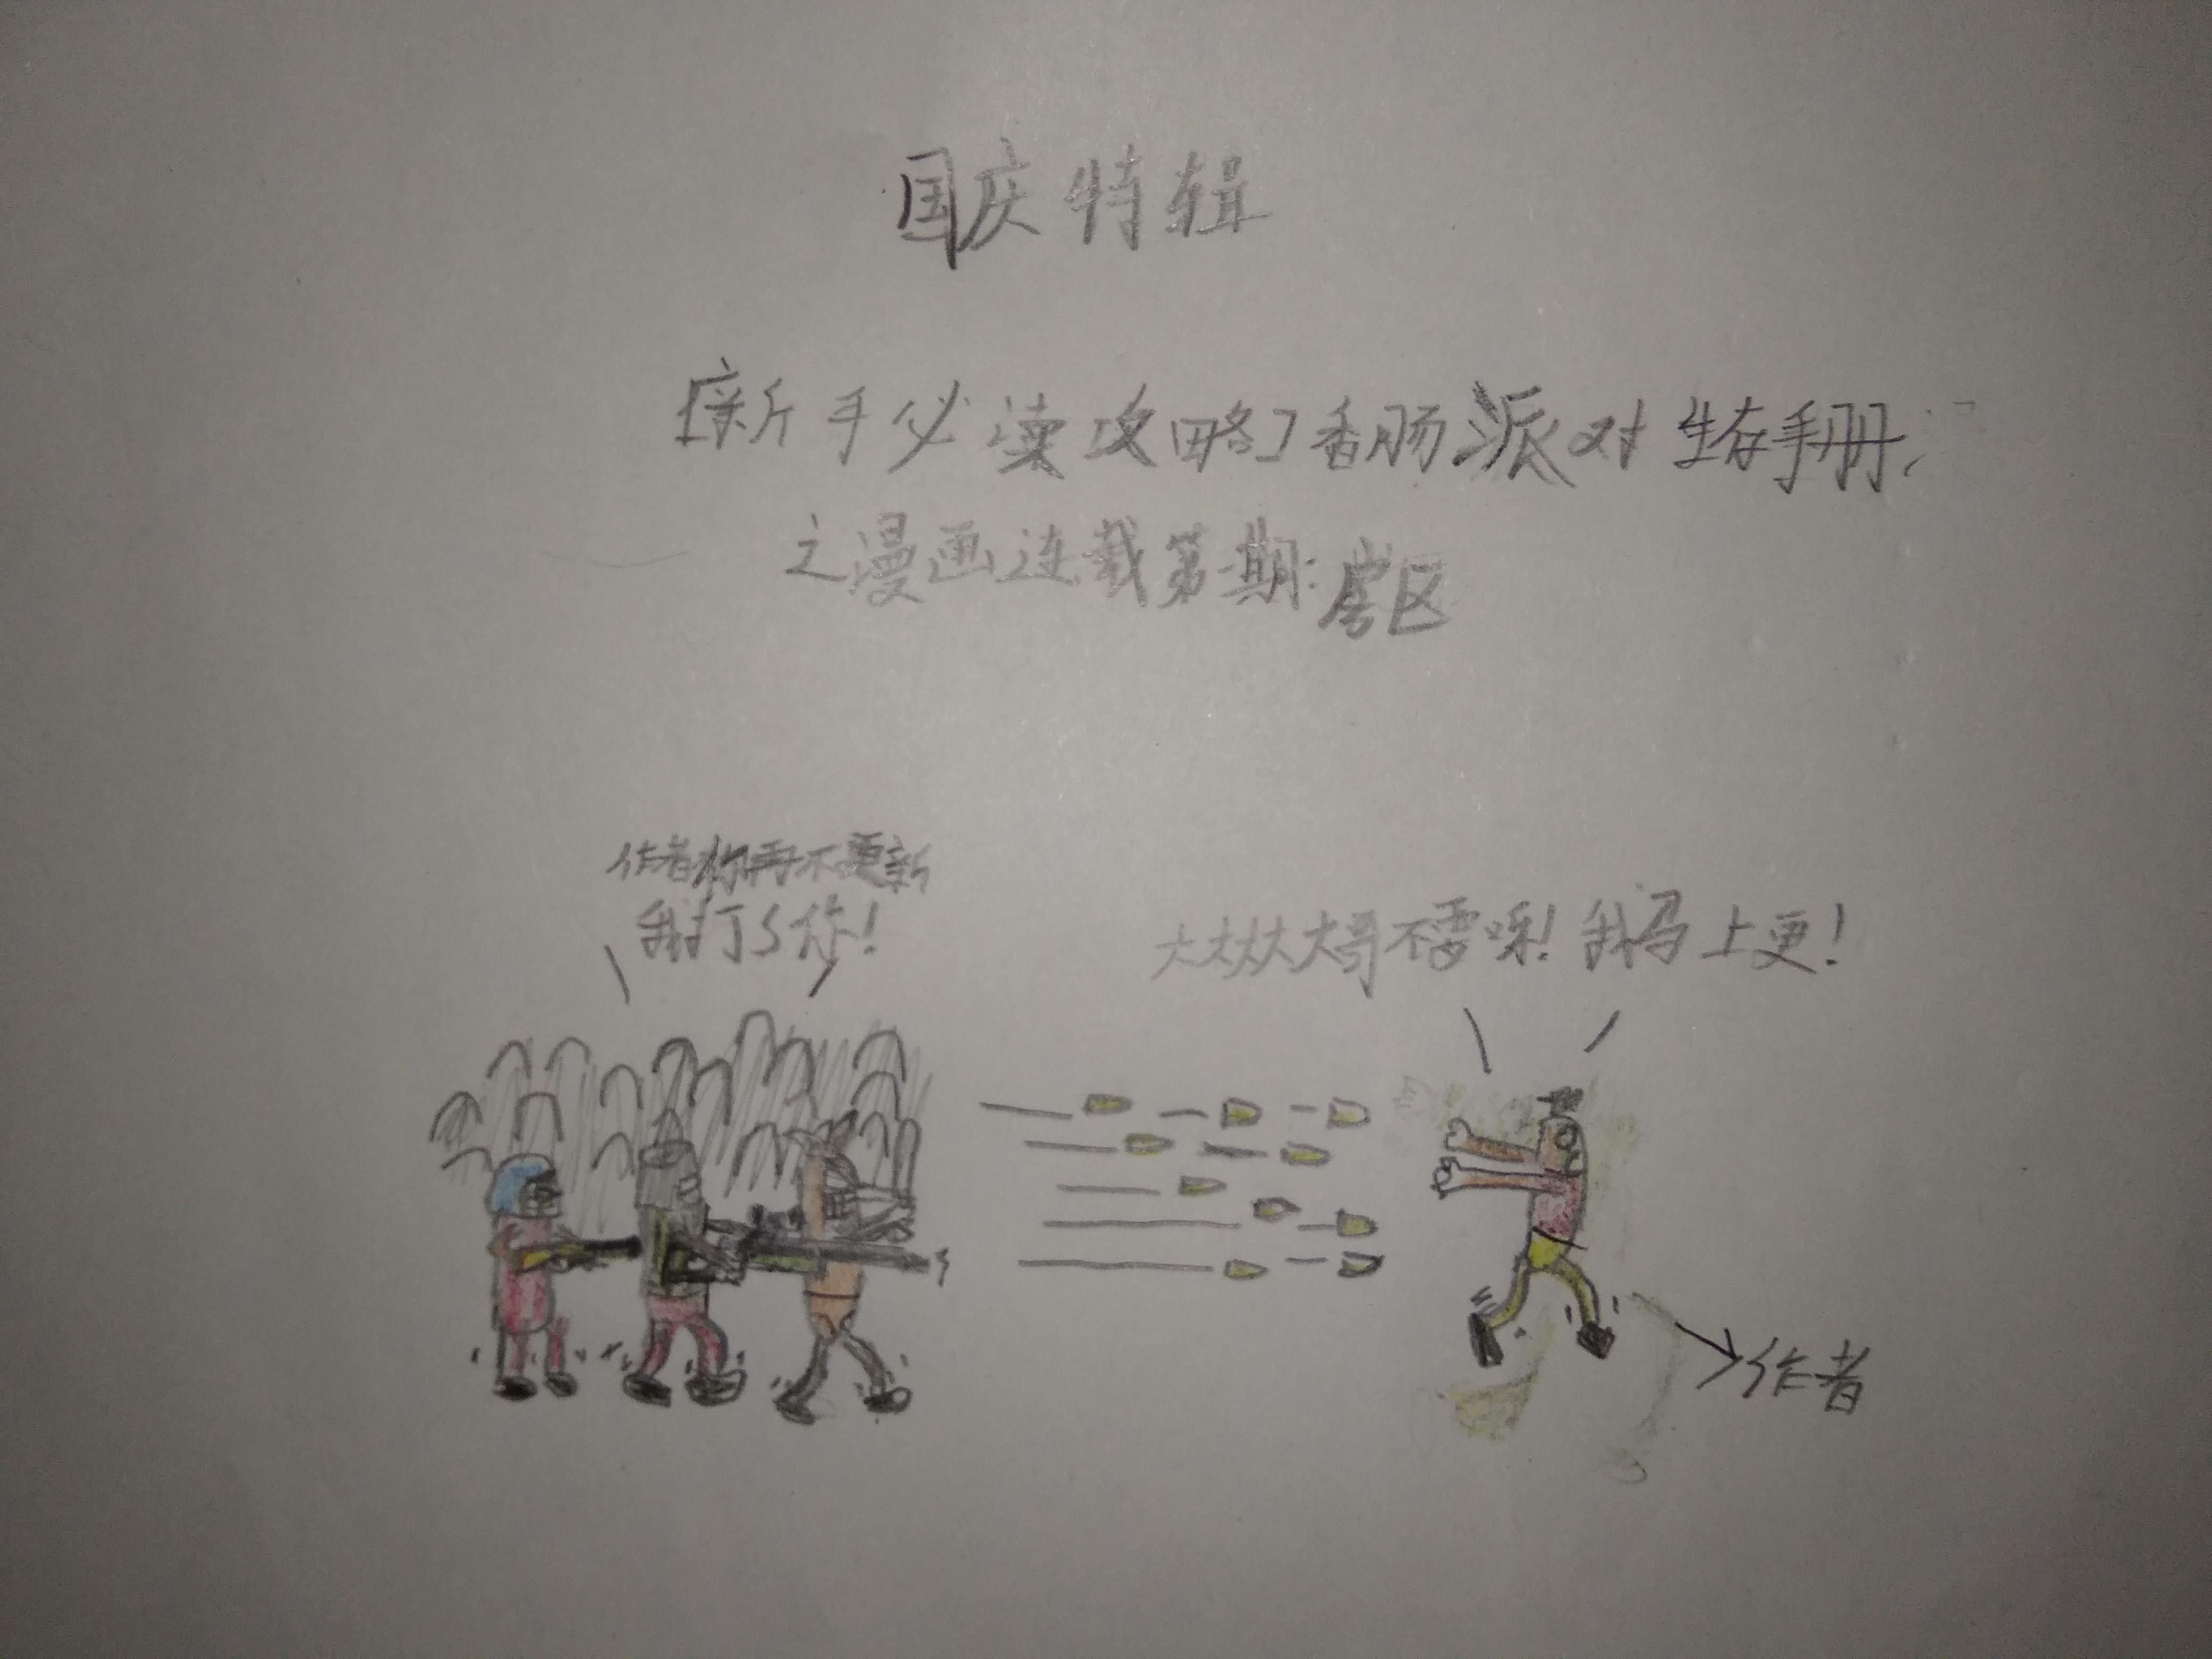 国庆特辑
【新手必读攻略】香肠派对生存手册
之漫画连载第一期:房区
作者你再不更新
我打S你!
大大大大大哥不要啊!我马上更!
作者